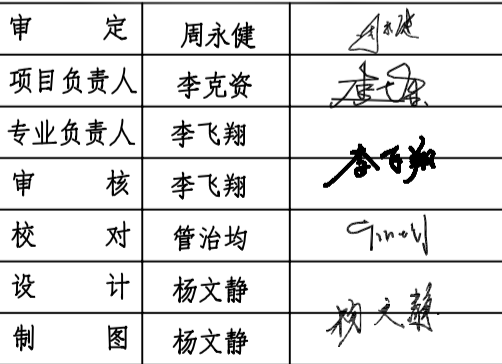 审 定 周永健 周永健
项目负责人 李克资
专业负责人 李飞翔 李飞翔
审 核 李飞翔
校 对 管治均
设 计 杨文静 杨文静
制 图 杨文静